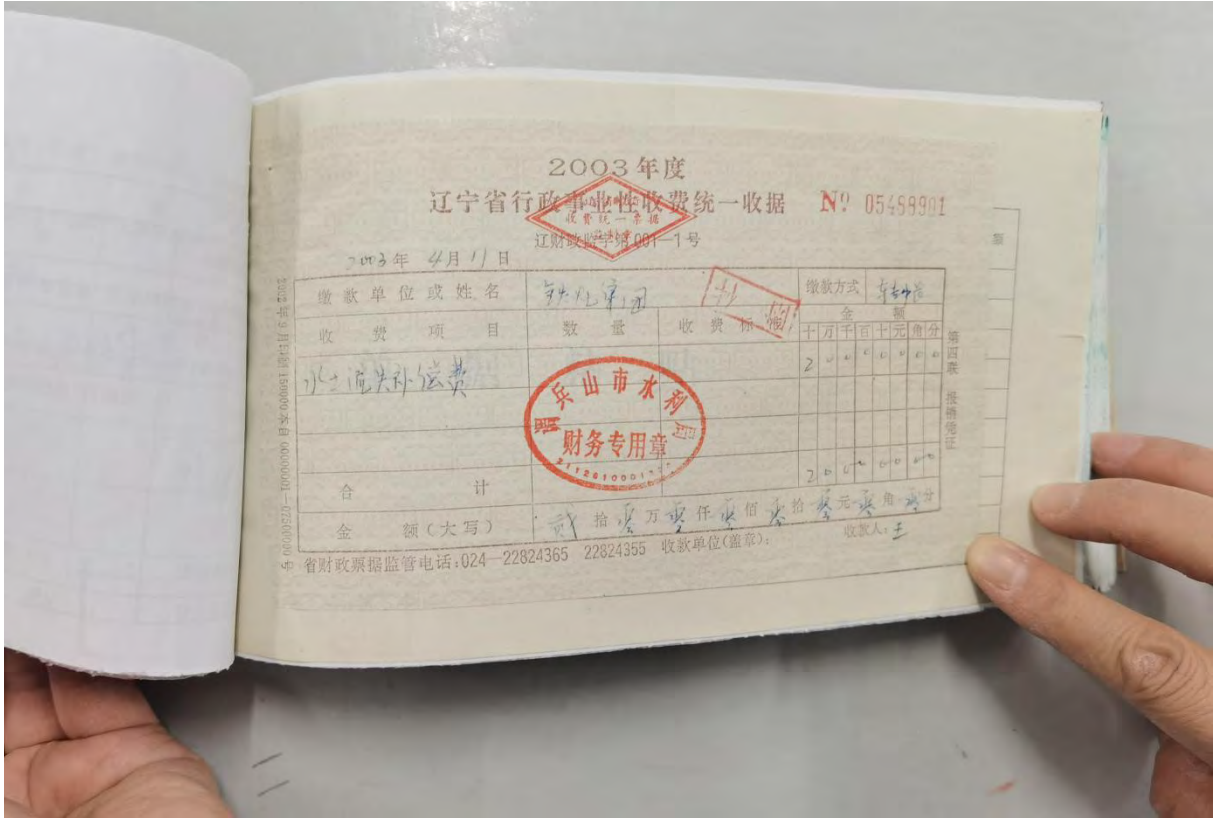 2003年度
辽宁省行政事业性收费统一收据 №
收费统一票据
辽财政监字第001—1号
2003年 4月11日
缴款单位或姓名 铁煤集团 缴款方式
收费项目 数量 收费标准 金额
十万千百十元角分
水土流失补偿费 20000000
调兵山市水利局
财务专用章
合计 20000000
金额(大写) 贰拾零万零仟零佰零拾零元零角零分
省财政票据监管电话:024—22824365 22824355 收款单位(盖章): 收款人:王
第四联 报销凭证